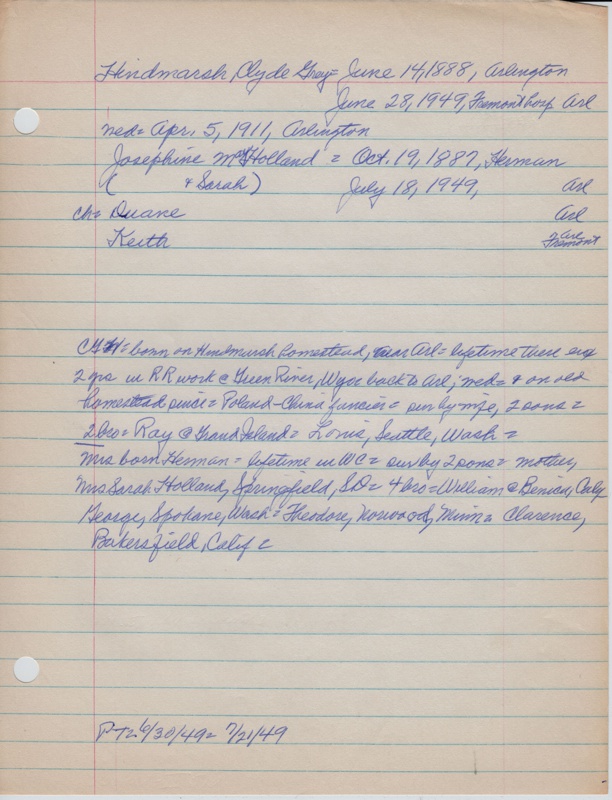 Hindmarsh, Clyde Grey = June 14, 1888, Arlington
June 28, 1949, Fremont hosp Arl
med = Apr. 5, 1911, Arlington
Josephine May Holland = Oct. 19, 1887, Herman
( & Sarah) July 18, 1949, Arl
ch = Duane Arl
Keith Arl Fremont
CGH = born on Hindmarsh homestead, near Arl = lifetime there exc
2 yrs in RR work @ Green River, Wyo = back to Arl; med = & on old
homestead since = Poland-China fancier = sur by wife, 2 sons =
2 bro = Ray @ Grand Island = Louis, Seattle, Wash =
Mrs born Herman = lifetime in WC = sur by 2 sons = mother,
Mrs Sarah Holland, Springfield, SD = 4 bro = William @ Benicia, Calif
George, Spokane, Wash = Theodore, Norwood, Minn = Clarence,
Bakersfield, Calif =
PT = 6/30/49 = 7/21/49